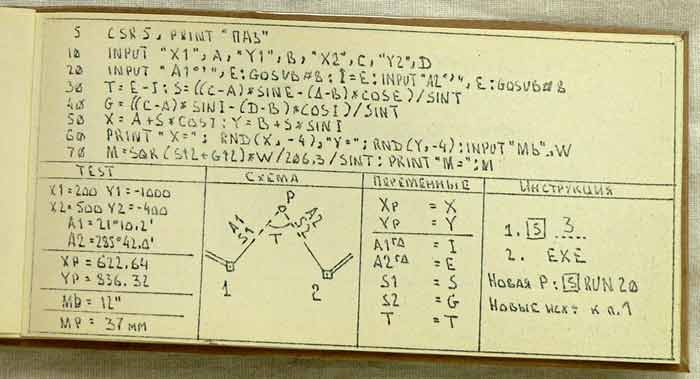 5 CSR 5, PRINT "ПАЗ"
10 INPUT "X1", A, "Y1", B, "X2", C, "Y2", D
20 INPUT "A1°'", E:GOSUB#B:I=E:INPUT"A2°'", E:GOSUB#B
30 T=E-I:S=((C-A)*SINE-(D-B)*COSE)/SINT
40 G=((C-A)*SINI-(D-B)*COSI)/SINT
50 X=A+S*COSI:Y=B+S*SINI
60 PRINT "X="; RND(X,-4),"Y="; RND(Y,-4):INPUT"Mb",W
70 M=SQR(S↑2+G↑2)*W/206.3/SINT:PRINT"M=";M
TEST
X1=200 Y1=-1000
X2=500 Y2=-400
A1=21°10,2'
A2=295°42.0'
XP=622.64
YP=836.32
Mb=12"
MP=37мм
СХЕМА
P
A1
S1
A2
S2
T
1
2
ПЕРЕМЕННЫЕ
XP = X
YP = Y
A1ГД = I
A2ГД = E
S1 = S
S2 = G
T = T
ИНСТРУКЦИЯ
1. S 3
2. EXE
НОВАЯ P: S RUN 20
НОВЫЕ ИСХ: К П.1